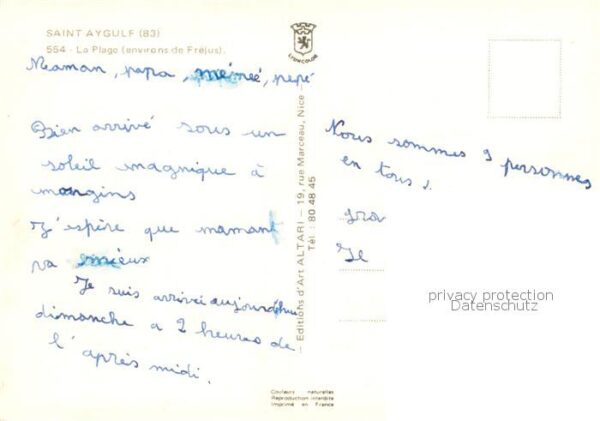 SAINT AYGULF (83)
554 - La Plage (environs de Fréjus).
LYONCOLOR
Maman, papa, mémeé, pepé
Bien arrivé sous un
soleil magnique à
mongins
J'espère que maman
va mieux
Je suis arrivé aujourdhui
dimanche a 2 heures de
l'après midi.
- Editions d'Art ALTARI - 19, rue Marceau, Nice -
Tél : 80 48 45
Nous sommes 9 personnes
en tous.
gra
Je
privacy protection
Datenschutz
Couleurs naturelles
Reproduction interdite
Imprimé en France